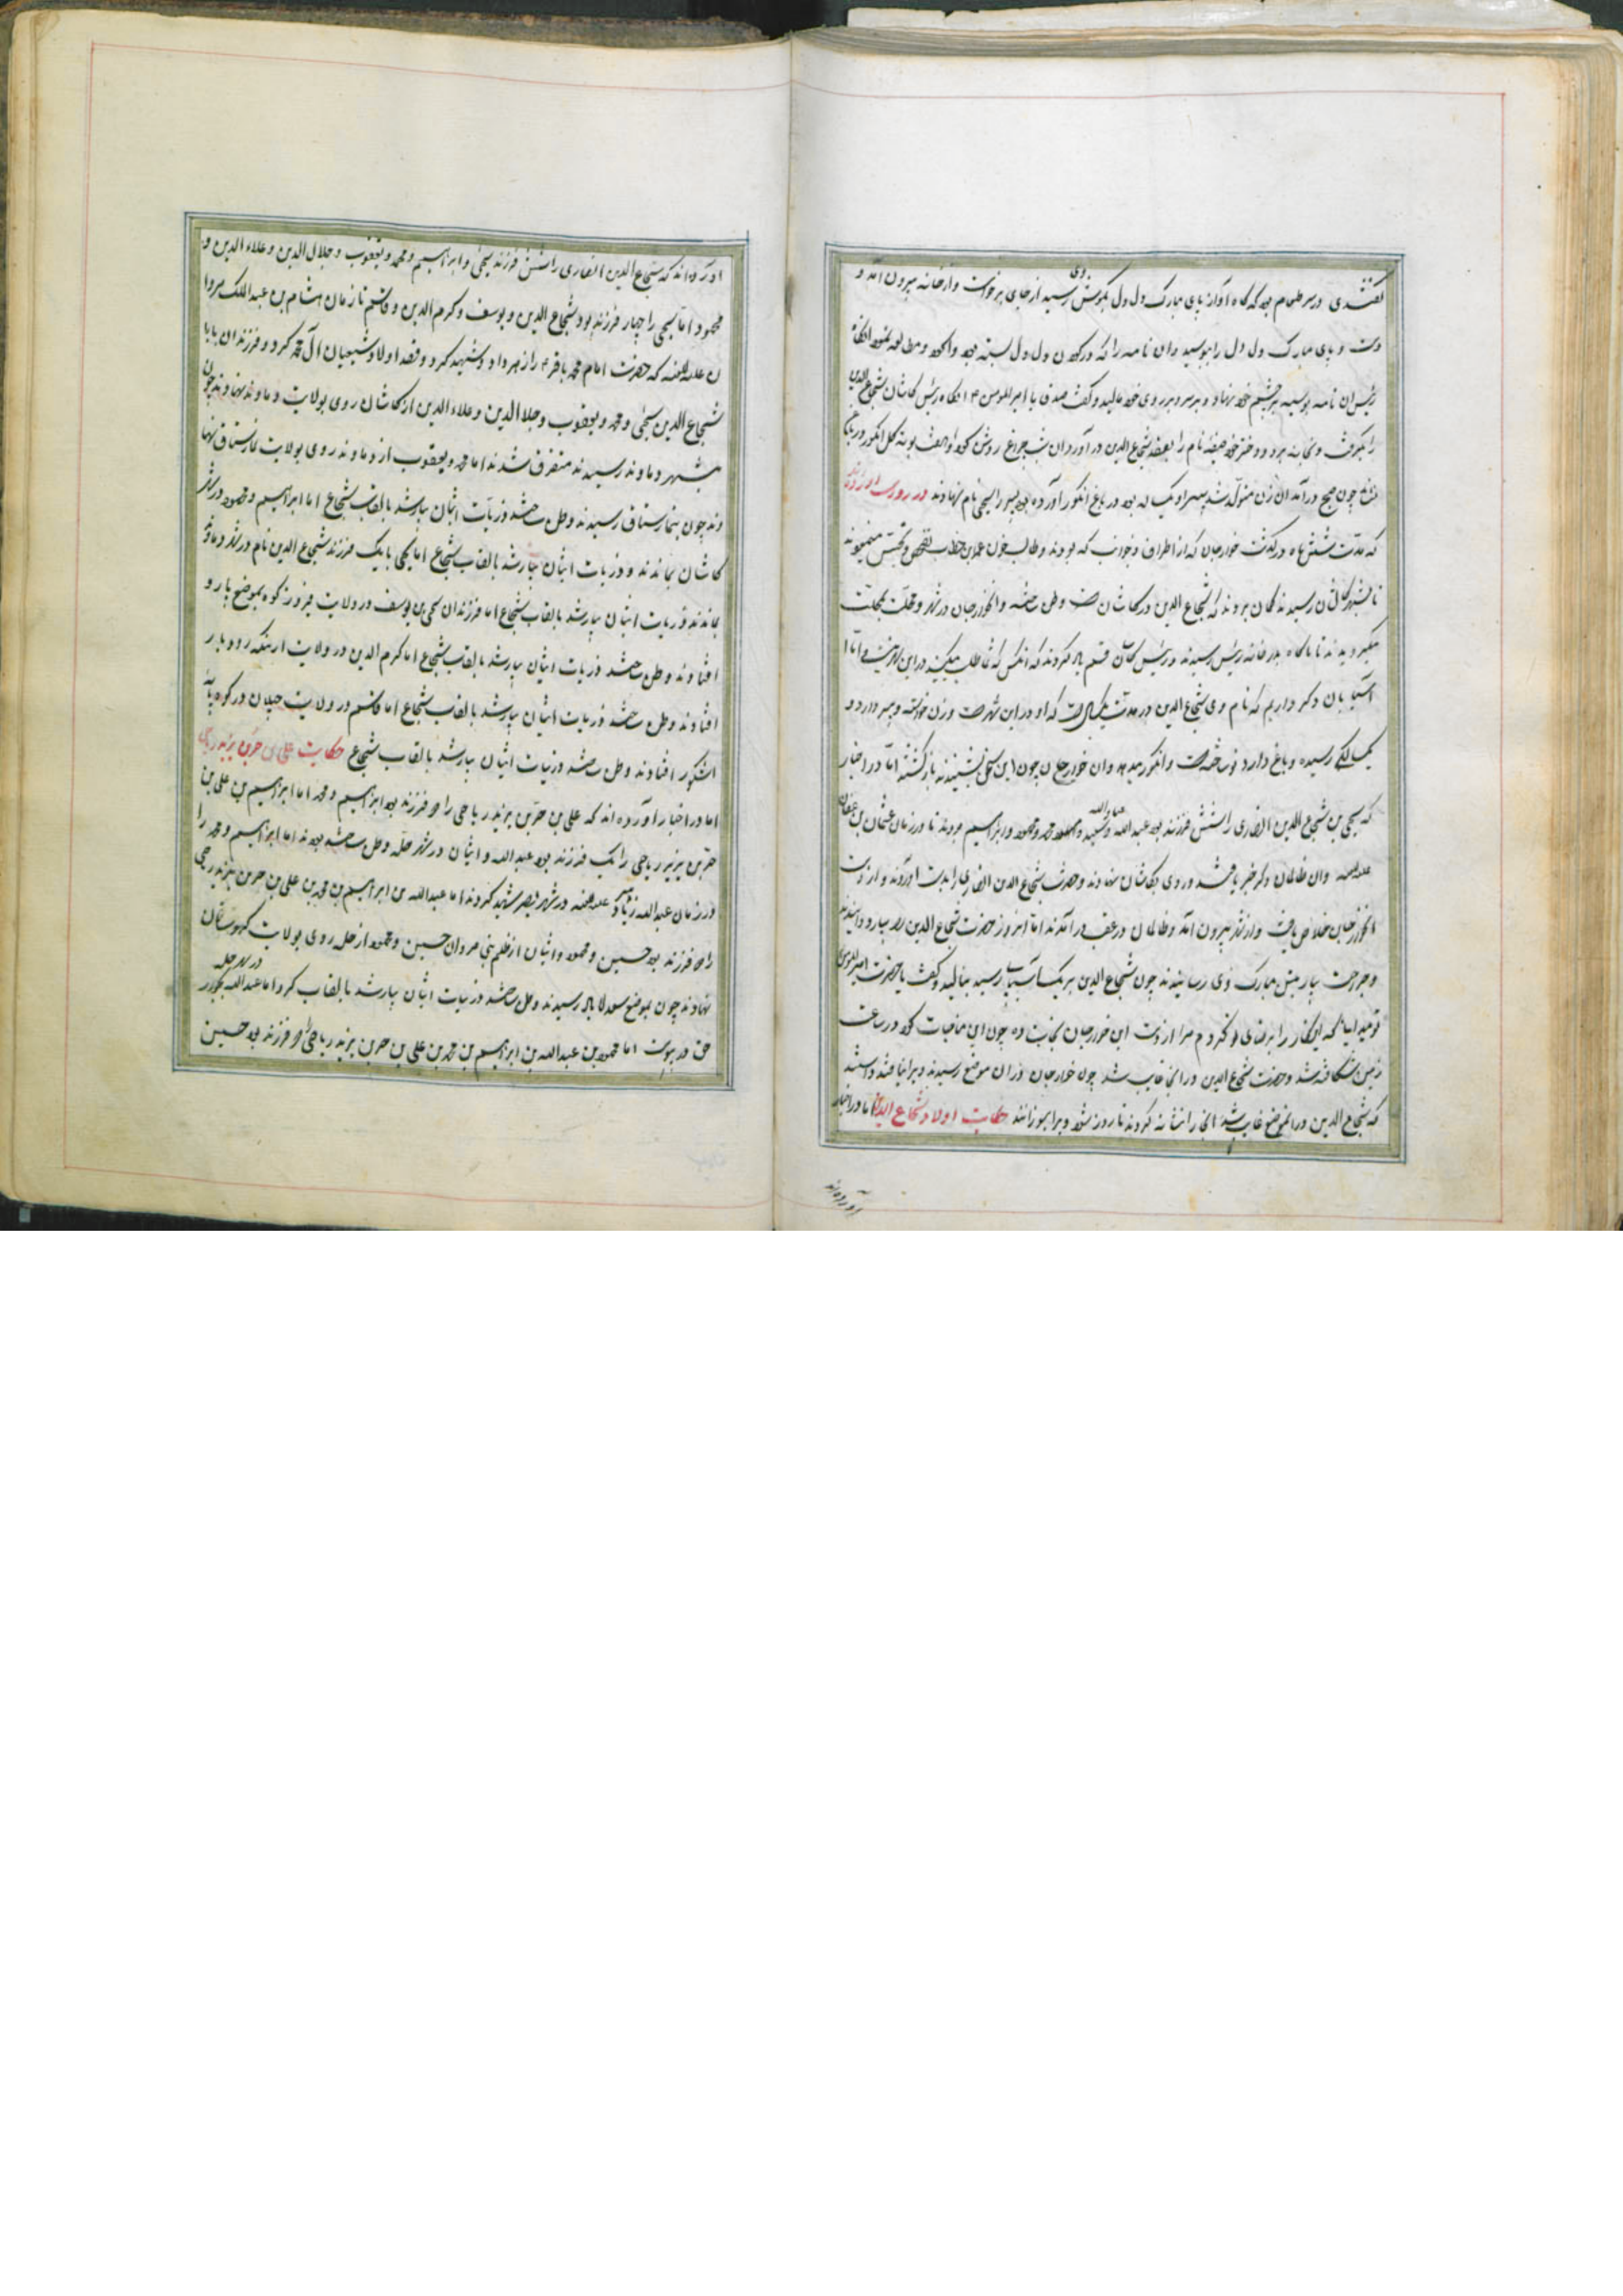 گفتندی در سر طعام بود که ناگاه آواز پای مبارک دل دل بگوش وی رسید از جای برخواست و از خانه بیرون آمد و
دست و پای مبارک دل دل را ببوسید و ان نامه را که در گردن دل دل بسته بود واکرد و مطالعه نمود انگاه
رئیس ان نامه بوسیده بر چشم خود نهاد و بر سر و بر روی خود مالید و گفت صدق یا امیرالمومنین انگاه رئیس کاشان شجاع الدین
را بگرفت و بخانه برد و دختر خود نام را بعقد شجاع الدین در آورد ان شب چراغ روشن کرد
چون صبح درآمد ان زن متولد شد پسر او یک ساله بود در باغ انگور آورده بود پسر را یحیی نام نهادند
که مدت شش ماه درگذشت خوارجان که از اطراف و جوانب که بودند و طالب خون عمر بن خطاب تفحص و تجسس مینمودند
تا بشهر کاشان رسیدند گمان بردند که شجاع الدین در کاشان است وطن ساخته و ان خوارجان در شهر و محلت بمحلت
میگردیدند تا ناگاه بدر خانه رئیس رسیدند و رئیس کاشان قسم یاد کردند که انکس که شما طلب میکنید در این شهر نیست اما
آسیابان دگر داریم که نام وی شجاع الدین در مدت یکسال است که او در این شهر است و زن خواسته و پسر دارد و
بیکسالگی رسیده و باغ دارد نو ساخته است و انگور میدهد و ان خوارجان چون این سخن بشنیدند بازگشتند اما در اخبار
که یحیی بن شجاع الدین انصاری را شش فرزند بود عبدالله و سعید و عباد الله و محمد و محمود و ابراهیم بودند تا در زمان عثمان بن عفان
علیه اللعنه و ان ظالمان دگر خبر یافتند و روی بکاشان نهادند و حضرت شجاع الدین انصاری را بدست آوردند و از دست
ان خوارجان خلاص یافت و از شهر بیرون آمد و ظالمان در عقب درآمدند اما ان روز حضرت شجاع الدین را بسیار دوانیدند
و جراحت بسیار بتن مبارک وی رسانیدند چون شجاع الدین نزدیک آسیاب رسید بنالید و گفت یا حضرت امیرالمومنین
تو میدانی که اینکار را برضای تو کردم مرا از دست این خوارجان نجات ده چون این مناجات کرد در ساعت
زمین شکافته شد و حضرت شجاع الدین در انجا غایب شد چون خوارجان در ان موضع رسیدند ویرا نیافتند دانستند
که شجاع الدین در انموضع غایب شد انجا را نشانه کردند تا روز شود ویرا بسوزانند حکایت اولاد شجاع الدین اما در اخبار
آورده‌اند
آورده‌اند که شجاع الدین انصاری را شش فرزند یحیی و ابراهیم و محمد و یعقوب و جلال الدین و علاء الدین و
محمود اما یحیی را چهار فرزند بود شجاع الدین و یوسف و کرم الدین و قاسم تا زمان هشام بن عبدالملک مروا
ن علیه اللعنه که حضرت امام محمد باقر ع را زهر داد و شهید کرد و قصد اولاد و شیعیان آل محمد کرد و فرزندان بابا
شجاع الدین یحیی و محمد و یعقوب و جلا الدین و علاء الدین از کاشان روی بولایت دماوند نهادند چون
بشهر دماوند رسیدند متفرق شدند اما محمد و یعقوب از دماوند روی بولایت نمارستاق نها
دند چون بنمارستاق رسیدند وطن ساختند ذریات ایشان بسیار شد بالقاب شجاع اما ابراهیم و محمود در شهر
کاشان بماندند و ذریات ایشان بسیار شد بالقاب شجاع اما یحیی با یک فرزند شجاع الدین نام در شهر دماوند
بماندند ذریات ایشان بسیار شد بالقاب شجاع اما فرزندان یحیی بن یوسف در ولایت فیروزکوه بموضع بارو
افتادند وطن ساختند ذریات ایشان بسیار شد بالقاب شجاع اما کرم الدین در ولایت رودبار
افتادند وطن ساختند ذریات ایشان بسیار شد بالقاب شجاع اما قاسم در ولایت جیلان در کوه پایه
اشکور افتادند وطن ساختند ذریات ایشان بسیار شد بالقاب شجاع حکایت علی بن حر بن یزید ریاحی
اما در اخبار آورده‌اند که علی بن حر بن یزید ریاحی را دو فرزند بود ابراهیم و محمد اما ابراهیم بن علی بن
حر بن یزید ریاحی را یک فرزند بود عبدالله و ایشان در شهر حله وطن ساخته بودند اما ابراهیم و محمد را
در زمان عبدالله زیاد علیه اللعنه در شهر بصره شهید کردند اما عبدالله بن ابراهیم بن محمد بن علی بن حر بن یزید ریاحی
را دو فرزند بود حسین و محمود و ایشان از ظلم بنی مروان حسین و محمود از حله روی بولایت کهوستان
نهادند چون بموضع رسیدند وطن ساختند ذریات ایشان بسیار شد بالقاب کرد اما عبدالله در شهر حله بجوار
حق در پیوست اما محمود بن عبدالله بن ابراهیم بن محمد بن علی بن حر بن یزید ریاحی را دو فرزند بود حسین